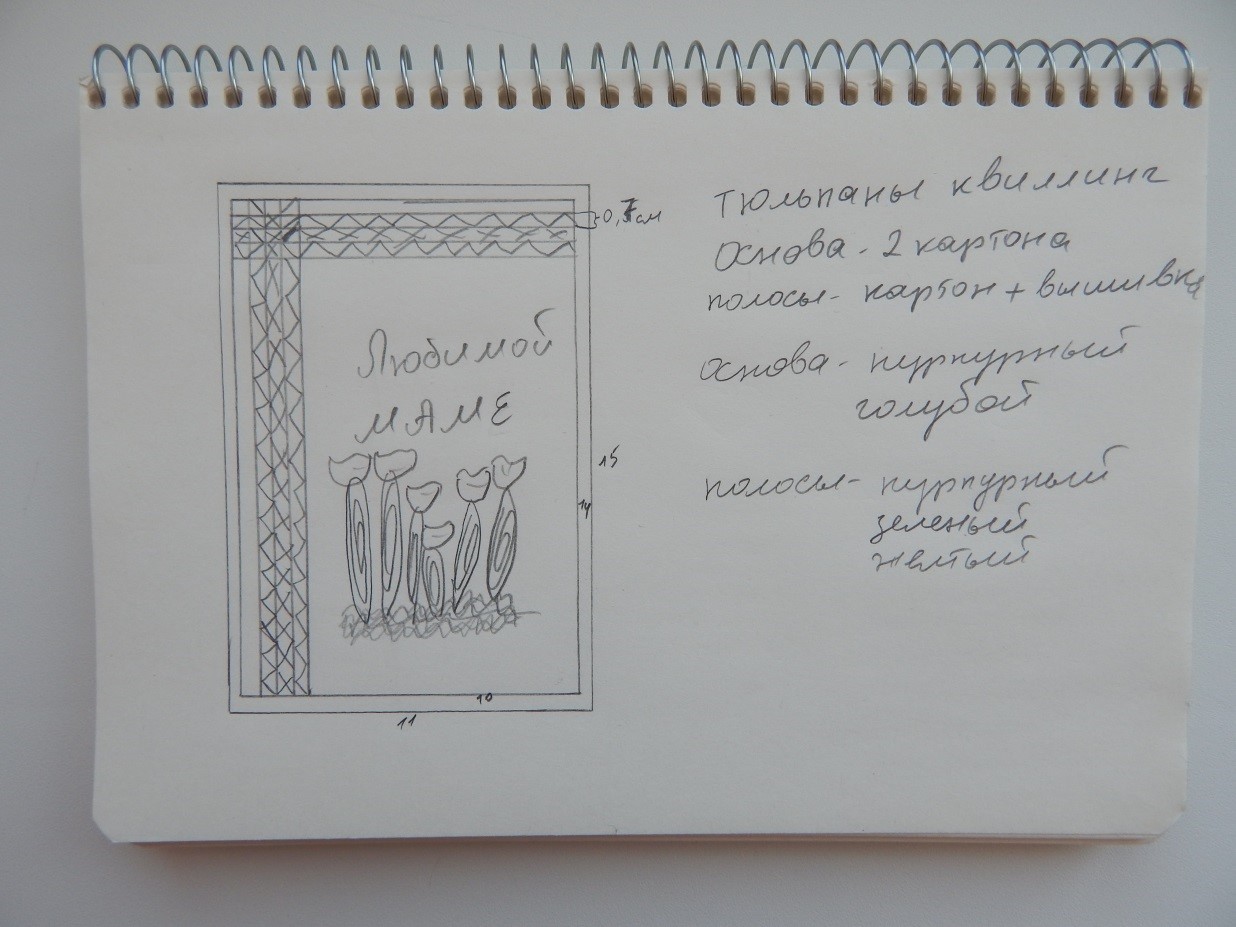 0,7см
Любимой
МАМЕ
15
14
10
11
Тюльпаны квиллинг
Основа - 2 картона
полосы - картон + вышивка
основа - пурпурный
голубой
полосы - пурпурный
зеленый
желтый